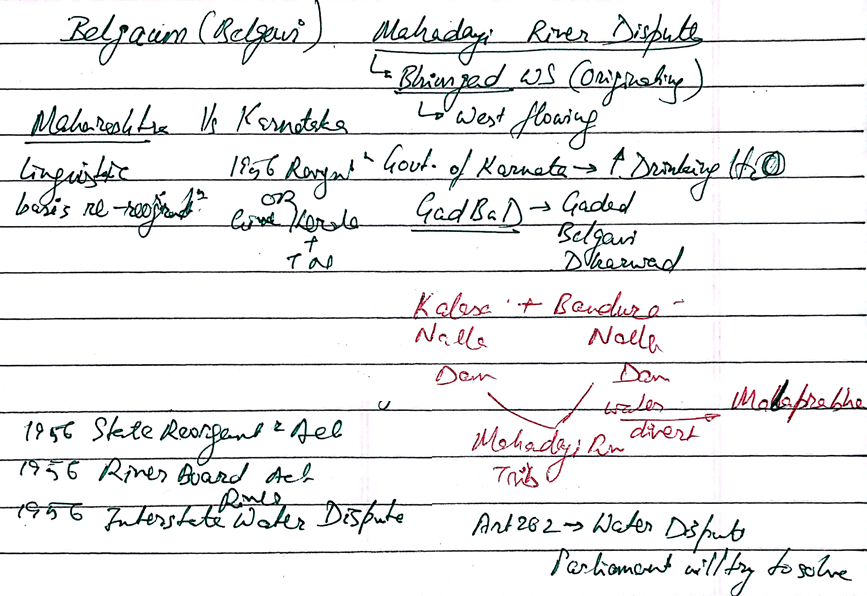 Belgaum (Belgavi)
Mahadayi River Dispute
↳ Bhimgad WS (Originating)
↳ West flowing
Maharashtra Vs Karnataka
linguistic
basis
1956
OR
Kerala
+
TN
Govt. of Karnata → ↑ Drinking H2O
GadBaD → Gaded
Belgavi
Dharwad
Kalasa + Bandura
Nalla Nalla
Dam Dam
water divert → Malaprabha
Mahadayi Riv
Trib
1956 State Reorgant Act
1956 River Board Act
1956 Interstate River Water Dispute
Art 262 → Water Disput
Parliament will try to solve